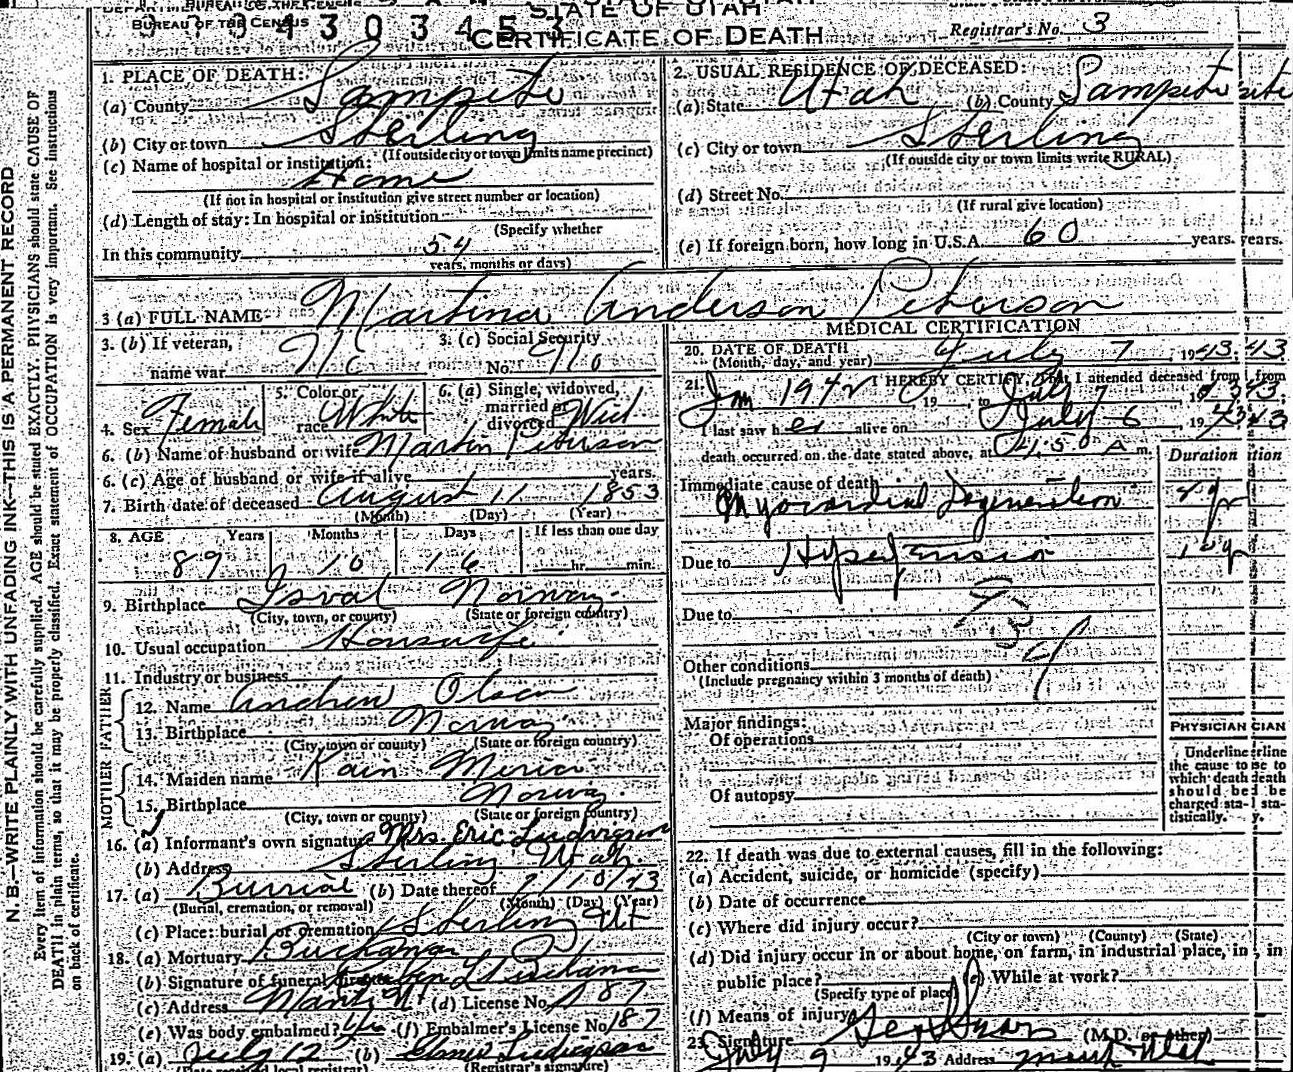 BUREAU OF THE CENSUS
STATE OF UTAH
CERTIFICATE OF DEATH
Registrar's No. 3
N.B.—WRITE PLAINLY WITH UNFADING INK—THIS IS A PERMANENT RECORD
Every item of information should be carefully supplied. AGE should be stated EXACTLY. PHYSICIANS should state CAUSE OF
DEATH in plain terms, so that it may be properly classified. Exact statement of OCCUPATION is very important. See instructions
on back of certificate.
1. PLACE OF DEATH:
(a) County Sanpete
(b) City or town Sterling
(If outside city or town limits name precinct)
(c) Name of hospital or institution:
Home
(If not in hospital or institution give street number or location)
(d) Length of stay: In hospital or institution
(Specify whether
In this community 54
years, months or days)
2. USUAL RESIDENCE OF DECEASED:
(a) State Utah (b) County Sanpete
(c) City or town Sterling
(If outside city or town limits write RURAL)
(d) Street No.
(If rural give location)
(e) If foreign born, how long in U.S.A. 60 years. years.
3 (a) FULL NAME Martina Anderson Peterson
3. (b) If veteran,
name war No
3. (c) Social Security
No. No
4. Sex Female
5. Color or
race White
6. (a) Single, widowed,
married or
divorced Wid
6. (b) Name of husband or wife Martin Peterson
6. (c) Age of husband or wife if alive years.
7. Birth date of deceased August 11 1853
(Month) (Day) (Year)
8. AGE Years Months Days If less than one day
89 10 16 hr. min.
9. Birthplace Norway
(City, town, or county) (State or foreign country)
10. Usual occupation Housewife
11. Industry or business
FATHER
12. Name Andrew Olsen
13. Birthplace Norway
(City, town or county) (State or foreign country)
MOTHER
14. Maiden name
15. Birthplace Norway
(City, town or county) (State or foreign country)
16. (a) Informant's own signature Mrs. Eric Ludvigson
(b) Address Sterling Utah
17. (a) Burrial (b) Date thereof 7/10/43
(Burial, cremation, or removal) (Month) (Day) (Year)
(c) Place: burial or cremation Sterling Ut
18. (a) Mortuary Buchanan
(b) Signature of funeral Buchanan
(c) Address Manti Ut (d) License No. 187
(e) Was body embalmed? Yes (f) Embalmer's License No. 187
19. (a) July 12 (b) Ludvigson
(Date received local registrar) (Registrar's signature)
MEDICAL CERTIFICATION
20. DATE OF DEATH
(Month, day, and year) July 7, 1943; 43
21. I HEREBY CERTIFY, That I attended deceased from from
Jan 1942 19 to July 7 1943;
I last saw her alive on July 6, 1943
death occurred on the date stated above, at 4:50 A m.
Duration
Immediate cause of death
Myocardial Degeneration
Due to Hypertension 10 yr
Due to
Other conditions
(Include pregnancy within 3 months of death)
Major findings:
Of operations
Of autopsy
PHYSICIAN CIAN
Underline erline
the cause to se to
which death death
should be d be
charged sta- l sta-
tistically. y.
22. If death was due to external causes, fill in the following:
(a) Accident, suicide, or homicide (specify)
(b) Date of occurrence
(c) Where did injury occur?
(City or town) (County) (State)
(d) Did injury occur in or about home, on farm, in industrial place, in , in
public place? (e) While at work?
(Specify type of place)
(f) Means of injury
23. Signature (M.D. or other)
July 9 1943 Address Manti Utah